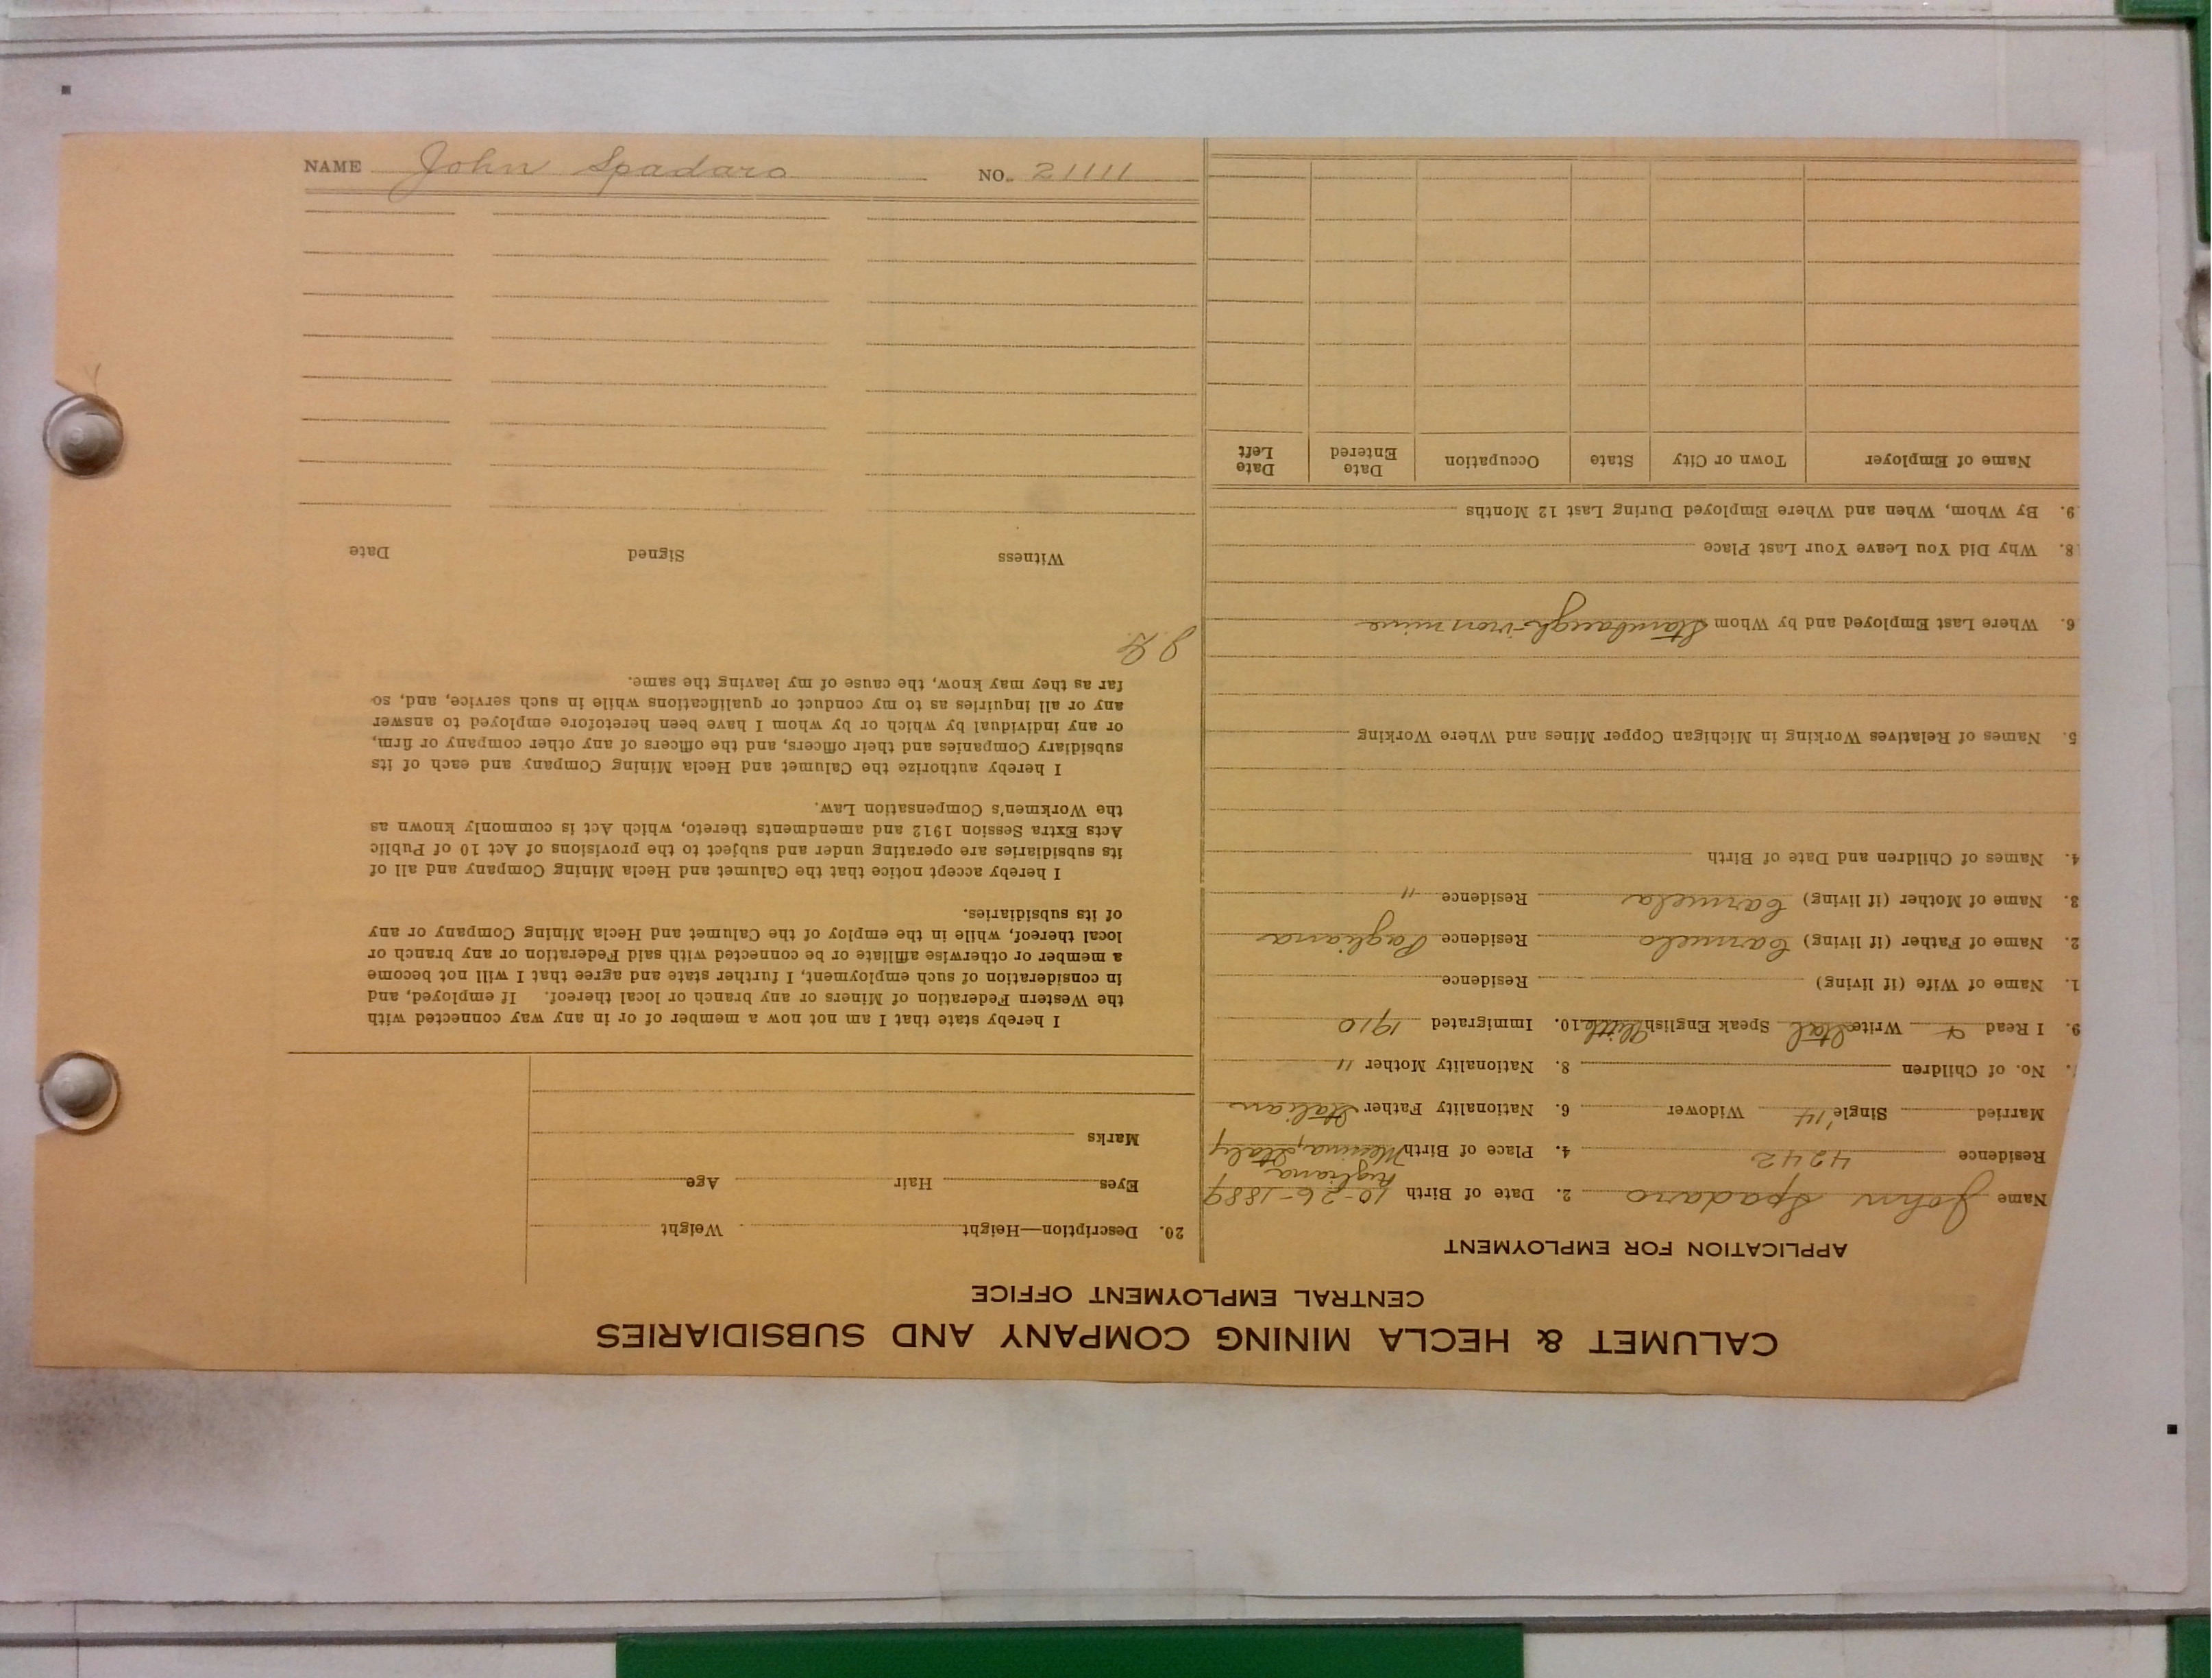 CALUMET & HECLA MINING COMPANY AND SUBSIDIARIES
CENTRAL EMPLOYMENT OFFICE
APPLICATION FOR EMPLOYMENT
Name John Spadaro 2. Date of Birth 10-26-1889
Residence 4242 4. Place of Birth Messina, Italy
Married Single Widower 6. Nationality Father Italian
No. of Children 8. Nationality Mother "
9. I Read & Write Ital Speak English Little 10. Immigrated 1910
1. Name of Wife (if living) Residence
2. Name of Father (if living) Carmelo Residence Pagliara
3. Name of Mother (if living) Carmela Residence "
4. Names of Children and Date of Birth
5. Names of Relatives Working in Michigan Copper Mines and Where Working
6. Where Last Employed and by Whom Stambaugh-iron mine
8. Why Did You Leave Your Last Place
9. By Whom, When and Where Employed During Last 12 Months
Name of Employer Town or City State Occupation Date Entered Date Left
20. Description—Height Weight
Eyes Hair Age
Marks
I hereby state that I am not now a member of or in any way connected with
the Western Federation of Miners or any branch or local thereof. If employed, and
in consideration of such employment, I further state and agree that I will not become
a member or otherwise affiliate or be connected with said Federation or any branch or
local thereof, while in the employ of the Calumet and Hecla Mining Company or any
of its subsidiaries.
I hereby accept notice that the Calumet and Hecla Mining Company and all of
its subsidiaries are operating under and subject to the provisions of Act 10 of Public
Acts Extra Session 1912 and amendments thereto, which Act is commonly known as
the Workmen's Compensation Law.
I hereby authorize the Calumet and Hecla Mining Company and each of its
subsidiary Companies and their officers, and the officers of any other company or firm,
or any individual by which or by whom I have been heretofore employed to answer
any or all inquiries as to my conduct or qualifications while in such service, and, so
far as they may know, the cause of my leaving the same.
Witness Signed Date
NAME John Spadaro NO. 21111